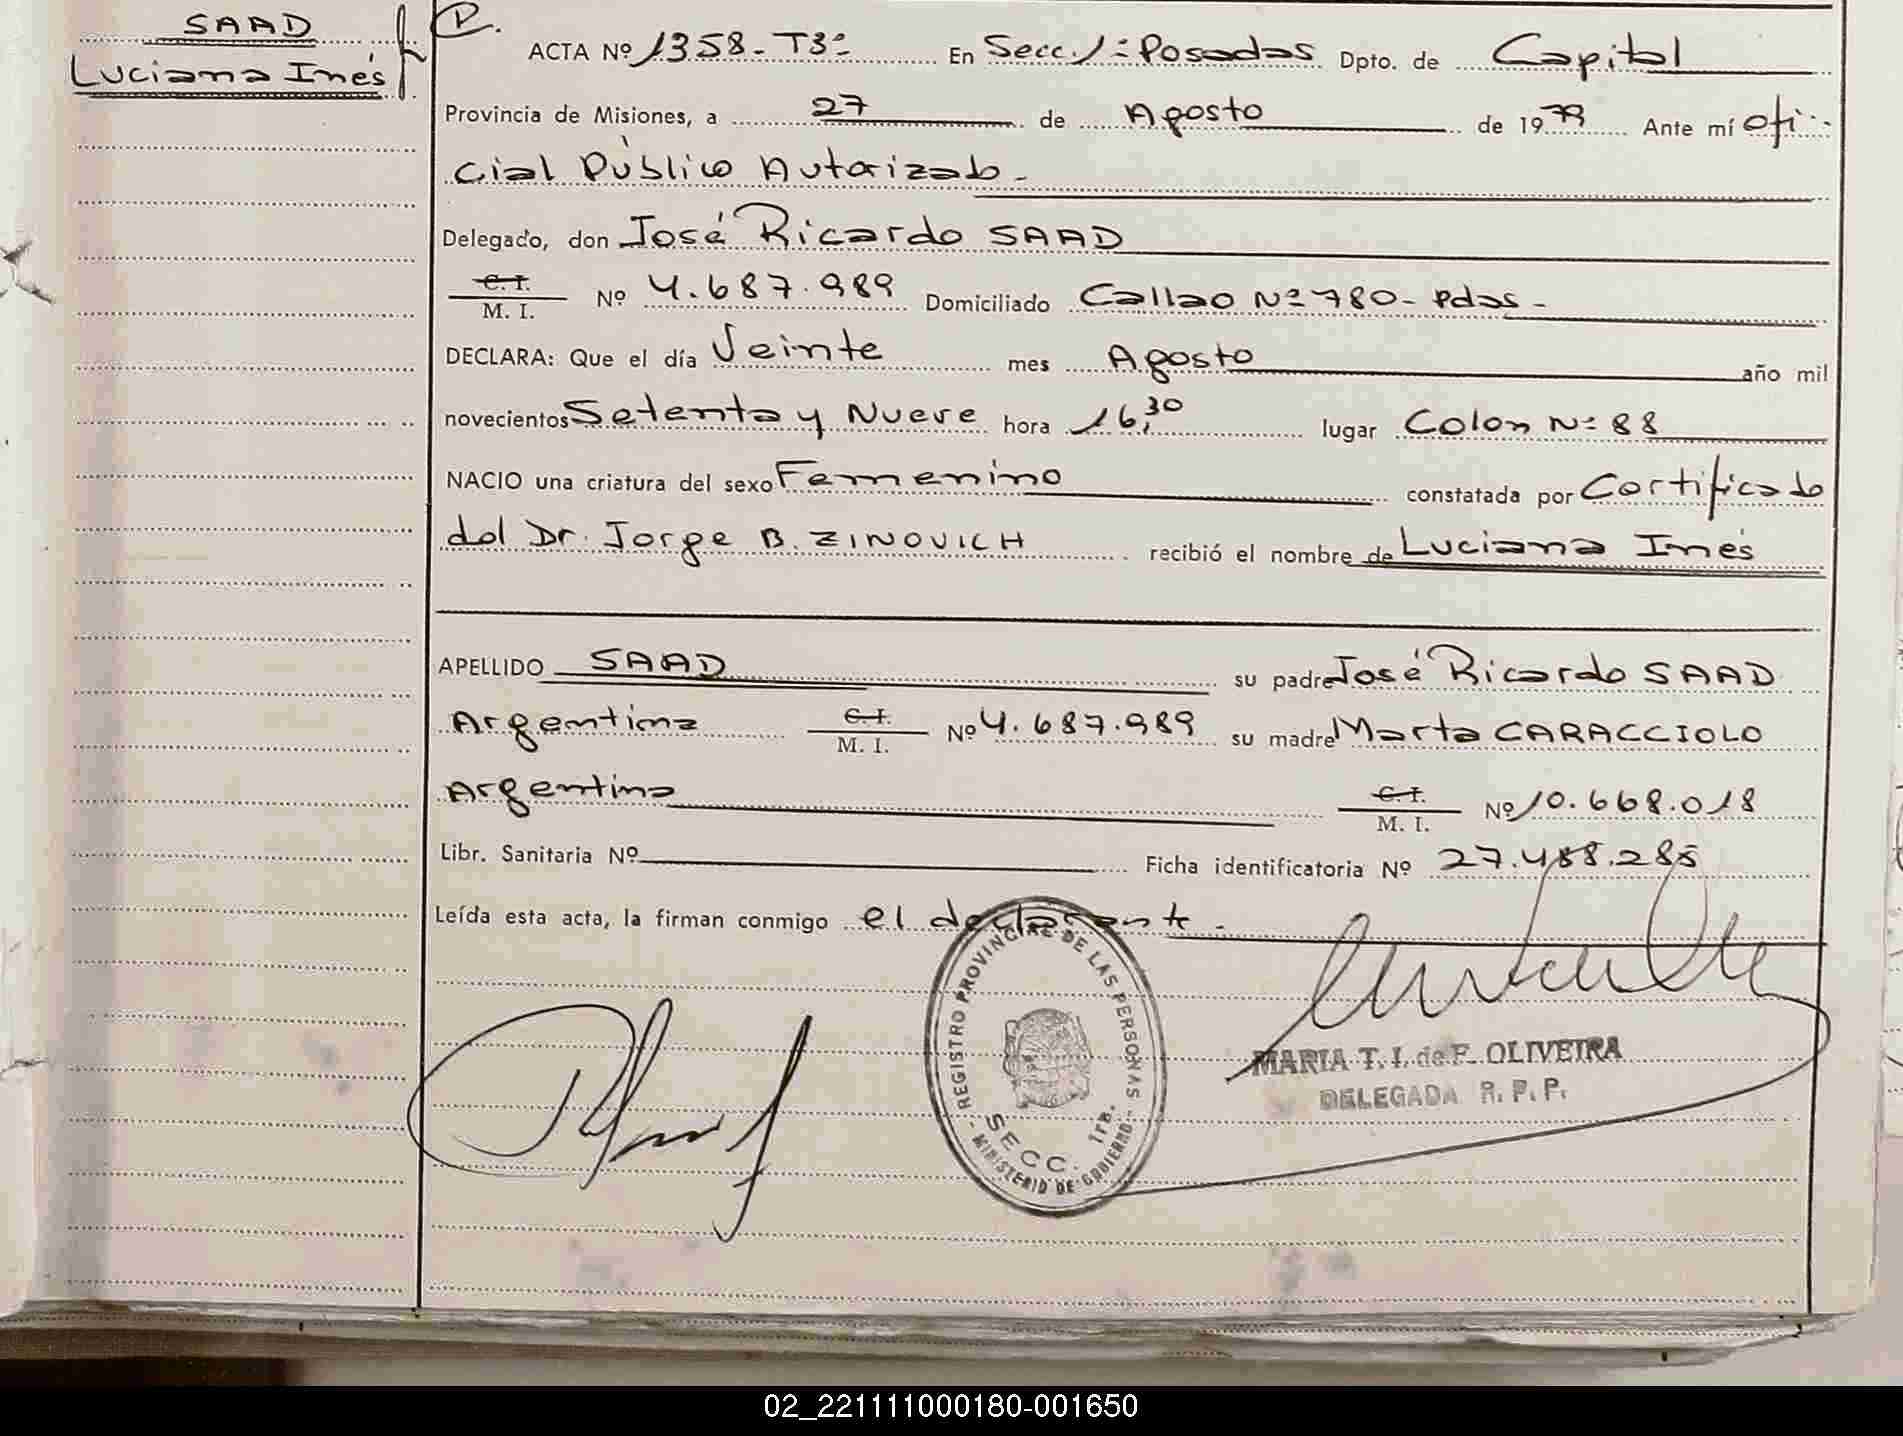 SAAD
Luciana Inés
ACTA Nº 1358-T3º En Secc. 1ª Posadas Dpto. de Capital
Provincia de Misiones, a 27 de Agosto de 1979 Ante mí Ofi-
cial Público Autorizado -
Delegado, don José Ricardo SAAD
C. I.
M. I. Nº 4.687.989 Domiciliado Callao Nº 780 - Pdas -
DECLARA: Que el día Veinte mes Agosto año mil
novecientos Setenta y Nueve hora 16,30 lugar Colon Nº 88
NACIO una criatura del sexo Femenino constatada por Certificado
del Dr. Jorge B. ZINOVICH recibió el nombre de Luciana Inés
APELLIDO SAAD su padre José Ricardo SAAD
Argentina C. I. M. I. Nº 4.687.989 su madre Marta CARACCIOLO
Argentina C. I. M. I. Nº 10.668.018
Libr. Sanitaria Nº Ficha identificatoria Nº 27.488.285
Leída esta acta, la firman conmigo el declarante -
REGISTRO PROVINCIAL DE LAS PERSONAS
SECC. 1RB.
- MINISTERIO DE GOBIERNO -
MARIA T. I. de F. OLIVEIRA
DELEGADA R. P. P.
02_221111000180-001650